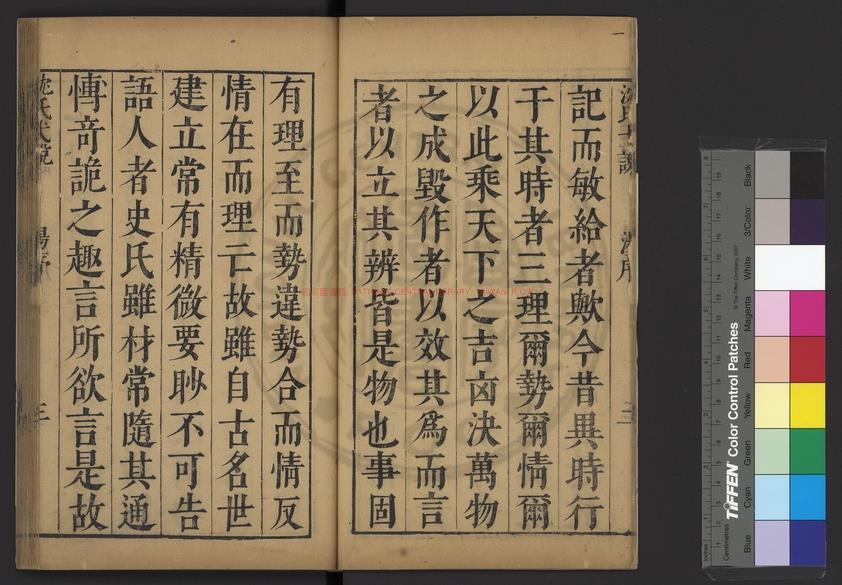 記而敏給者歟今昔異時行
于其時者三理爾勢爾情爾
以此乘天下之吉凶決萬物
之成毀作者以效其爲而言
者以立其辨皆是物也事固
有理至而勢違勢合而情反
情在而理亡故雖自古名世
建立常有精微要眇不可告
語人者史氏雖材常隨其通
博奇詭之趣言所欲言是故
沈氏弋說
湯序
三
Centimetres
TIFFEN Color Control Patches
© The Tiffen Company, 2007
Blue
Cyan
Green
Yellow
Red
Magenta
White
3/Color
Black